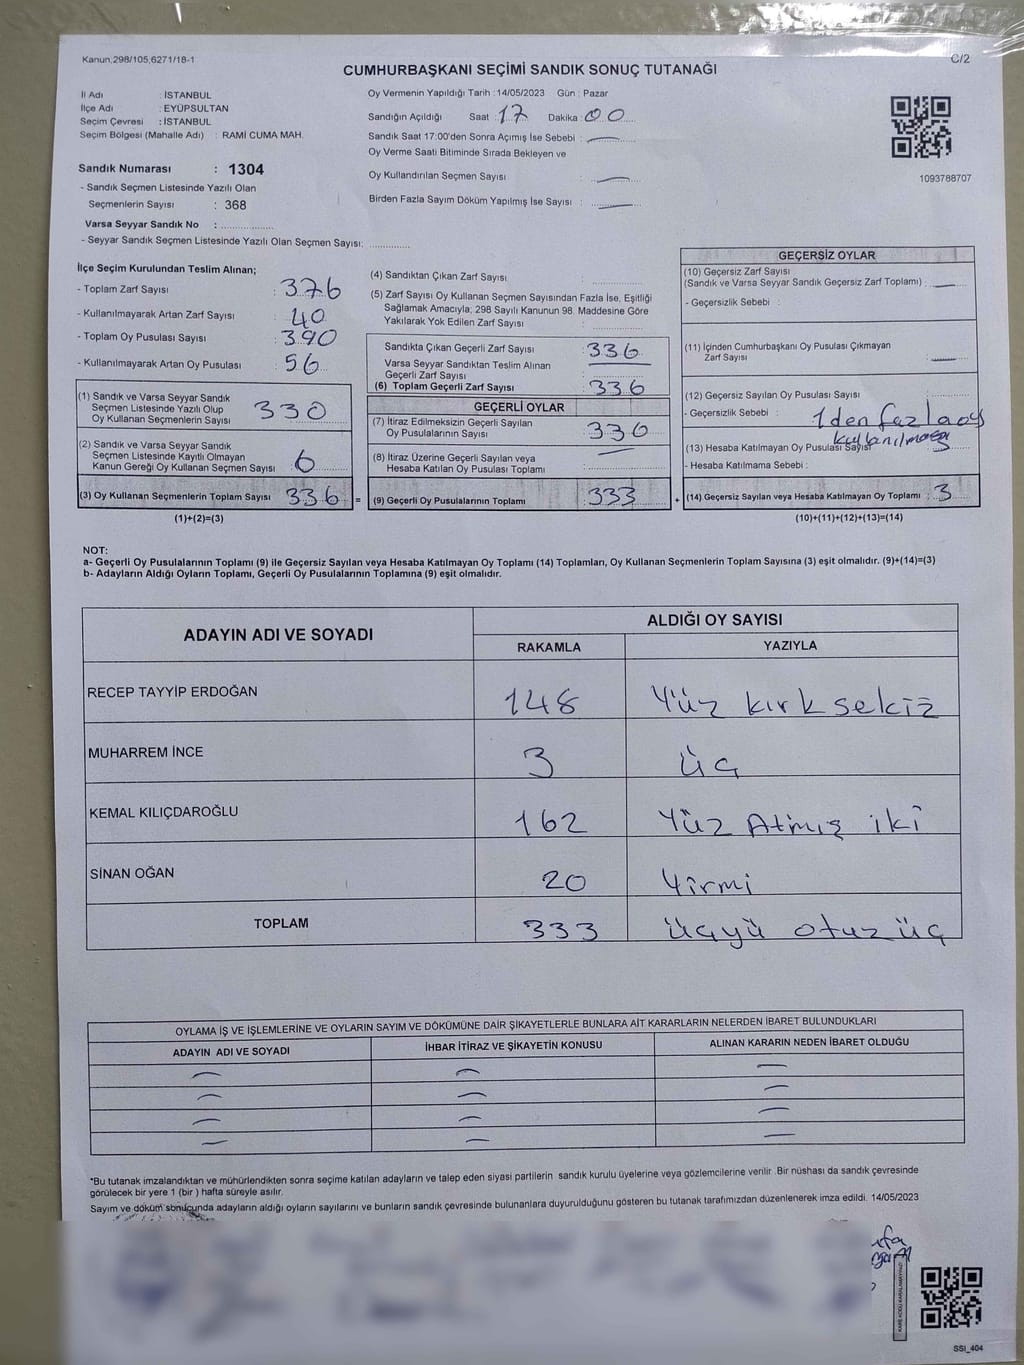 Kanun;298/105,6271/18-1
C/2
CUMHURBAŞKANI SEÇİMİ SANDIK SONUÇ TUTANAĞI
İl Adı : İSTANBUL
İlçe Adı : EYÜPSULTAN
Seçim Çevresi : İSTANBUL
Seçim Bölgesi (Mahalle Adı) : RAMİ CUMA MAH.
Sandık Numarası : 1304
- Sandık Seçmen Listesinde Yazılı Olan
Seçmenlerin Sayısı : 368
Varsa Seyyar Sandık No : ................
- Seyyar Sandık Seçmen Listesinde Yazılı Olan Seçmen Sayısı: ............
Oy Vermenin Yapıldığı Tarih :14/05/2023 Gün : Pazar
Sandığın Açıldığı Saat :17 Dakika :00
Sandık Saat 17:00'den Sonra Açımış İse Sebebi : —
Oy Verme Saati Bitiminde Sırada Bekleyen ve
Oy Kullandırılan Seçmen Sayısı : —
Birden Fazla Sayım Döküm Yapılmış İse Sayısı : —
1093788707
İlçe Seçim Kurulundan Teslim Alınan;
- Toplam Zarf Sayısı : 376
- Kullanılmayarak Artan Zarf Sayısı : 40
- Toplam Oy Pusulası Sayısı : 390
- Kullanılmayarak Artan Oy Pusulası : 56
(1) Sandık ve Varsa Seyyar Sandık
Seçmen Listesinde Yazılı Olup
Oy Kullanan Seçmenlerin Sayısı : 330
(2) Sandık ve Varsa Seyyar Sandık
Seçmen Listesinde Kayıtlı Olmayan
Kanun Gereği Oy Kullanan Seçmen Sayısı : 6
(3) Oy Kullanan Seçmenlerin Toplam Sayısı : 336 =
(1)+(2)=(3)
(4) Sandıktan Çıkan Zarf Sayısı : ............
(5) Zarf Sayısı Oy Kullanan Seçmen Sayısından Fazla İse, Eşitliği
Sağlamak Amacıyla; 298 Sayılı Kanunun 98. Maddesine Göre
Yakılarak Yok Edilen Zarf Sayısı : ............
Sandıkta Çıkan Geçerli Zarf Sayısı : 336
Varsa Seyyar Sandıktan Teslim Alınan
Geçerli Zarf Sayısı : —
(6) Toplam Geçerli Zarf Sayısı : 336
GEÇERLİ OYLAR
(7) İtiraz Edilmeksizin Geçerli Sayılan
Oy Pusulalarının Sayısı : 336
(8) İtiraz Üzerine Geçerli Sayılan veya
Hesaba Katılan Oy Pusulası Toplamı : —
(9) Geçerli Oy Pusulalarının Toplamı : 333 +
GEÇERSİZ OYLAR
(10) Geçersiz Zarf Sayısı
(Sandık ve Varsa Seyyar Sandık Geçersiz Zarf Toplamı) : —
- Geçersizlik Sebebi :
(11) İçinden Cumhurbaşkanı Oy Pusulası Çıkmayan
Zarf Sayısı : —
(12) Geçersiz Sayılan Oy Pusulası Sayısı : ............
- Geçersizlik Sebebi : 1 den fazla oy
kullanılması
(13) Hesaba Katılmayan Oy Pusulası Sayısı : 3
- Hesaba Katılmama Sebebi :
(14) Geçersiz Sayılan veya Hesaba Katılmayan Oy Toplamı : 3
(10)+(11)+(12)+(13)=(14)
NOT:
a- Geçerli Oy Pusulalarının Toplamı (9) ile Geçersiz Sayılan veya Hesaba Katılmayan Oy Toplamı (14) Toplamları, Oy Kullanan Seçmenlerin Toplam Sayısına (3) eşit olmalıdır. (9)+(14)=(3)
b- Adayların Aldığı Oyların Toplamı, Geçerli Oy Pusulalarının Toplamına (9) eşit olmalıdır.
ADAYIN ADI VE SOYADI
ALDIĞI OY SAYISI
RAKAMLA YAZIYLA
RECEP TAYYİP ERDOĞAN 148 Yüz kırk sekiz
MUHARREM İNCE 3 üç
KEMAL KILIÇDAROĞLU 162 Yüz Atmış iki
SİNAN OĞAN 20 Yirmi
TOPLAM 333 üçyü otuz üç
OYLAMA İŞ VE İŞLEMLERİNE VE OYLARIN SAYIM VE DÖKÜMÜNE DAİR ŞİKAYETLERLE BUNLARA AİT KARARLARIN NELERDEN İBARET BULUNDUKLARI
ADAYIN ADI VE SOYADI İHBAR İTİRAZ VE ŞİKAYETİN KONUSU ALINAN KARARIN NEDEN İBARET OLDUĞU
— — —
— — —
— — —
— — —
*Bu tutanak imzalandıktan ve mühürlendikten sonra seçime katılan adayların ve talep eden siyasi partilerin sandık kurulu üyelerine veya gözlemcilerine verilir .Bir nüshası da sandık çevresinde
görülecek bir yere 1 (bir ) hafta süreyle asılır.
Sayım ve döküm sonucunda adayların aldığı oyların sayılarını ve bunların sandık çevresinde bulunanlara duyurulduğunu gösteren bu tutanak tarafımızdan düzenlenerek imza edildi. 14/05/2023
KARE KODU KARALAMAYINIZ!
SSI_404